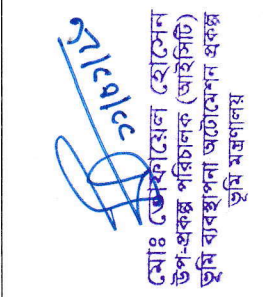 মোঃ তোফায়েল হোসেন
উপ-প্রকল্প পরিচালক (আইসিটি)
ভূমি ব্যবস্থাপনা অটোমেশন প্রকল্প
ভূমি মন্ত্রণালয়